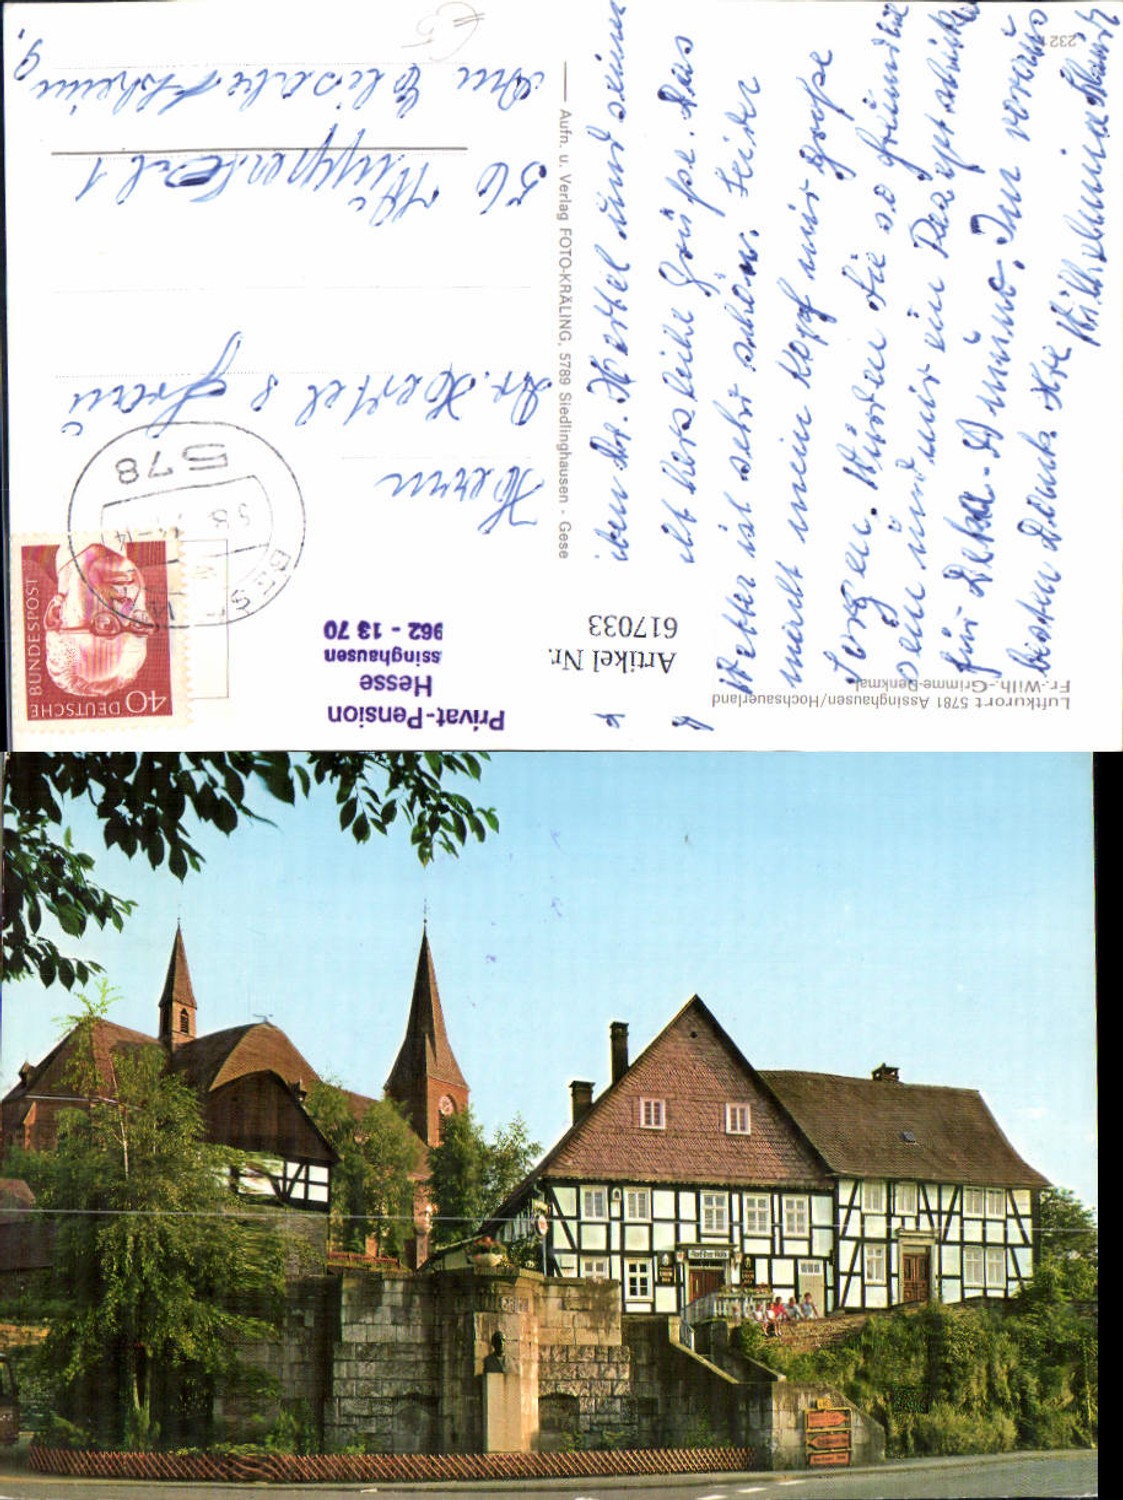 Luftkurort 5781 Assinghausen/Hochsauerland
Fr.-Wilh.-Grimme-Denkmal
Artikel Nr.
617033
Privat-Pension
Hesse
ssinghausen
962 - 13 70
DEUTSCHE
BUNDESPOST
40
578
Aufn. u. Verlag FOTO-KRÄLING, 5789 Siedlinghausen - Gese
232
Lieber Dr. Hertel und seine
herzliche Grüße. Das
Wetter ist sehr schön. Leider
macht mein Kopf mir große
Sorgen. Würden Sie so freundlich
sein und mir ein Rezept schicken
für
Im voraus
besten Dank. Ihre Wilhelmine
Herrn
Dr. Hertel & Frau
56 Wuppertal 1